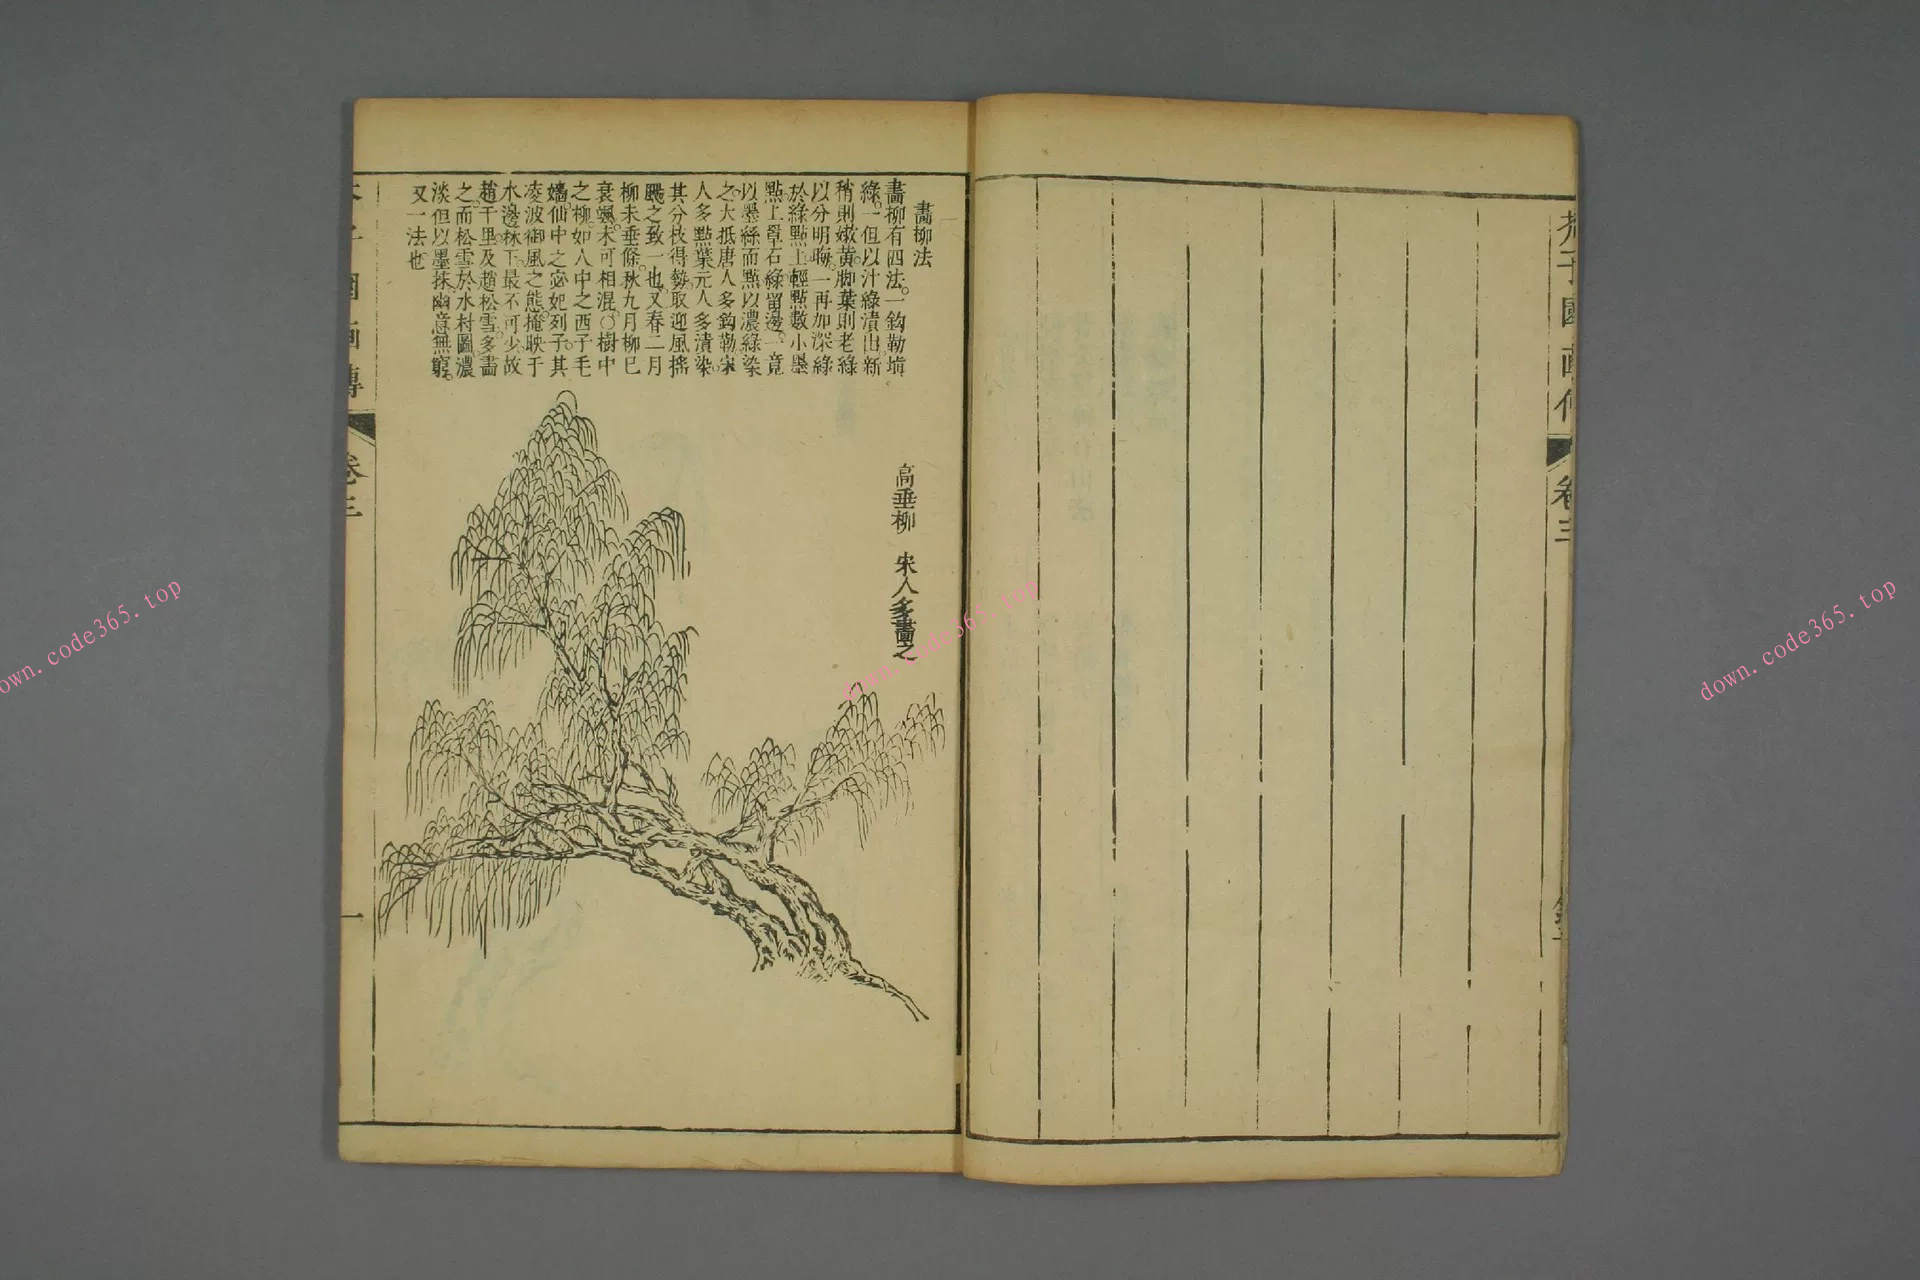 畫柳法
畫柳有四法。一鈎勒塡
綠。一但以汁綠漬出新
稍則嫩黃。脚葉則老綠
以分明晦。一再加深綠
於綠㸃上輕㸃數小墨
㸃上草石綠留邊。一竟
以墨絲而㸃以濃綠染
之。大抵唐人多鈎勒。宋
人多㸃葉元人多漬染
其分枝得勢。取迎風搖
颺之致一也又春二月
柳未垂條秋九月柳已
衰颯。未可相混。〇樹中
之柳。如人中之西子毛
嬙。仙中之宓妃列子。其
凌波御風之態。掩映于
水邊林下最不可少。故
趙千里及趙松雪。多畵
之而松雪於水村圖濃
淡但以墨抹幽意無窮。
又一法也
高垂柳 宋人多畫之
芥子園畫傳
卷三
一
卷三
down.code365.top
down.code365.top
down.code365.top